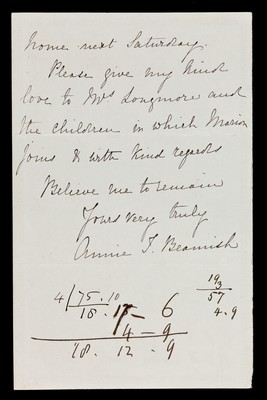 home next Saturday.
Please give my kind
love to Mrs Longmore and
the children in which Marion
joins & with kind regards
Believe me to remain
Yours very truly
Annie T. Beamish
4 | 75. 10
6
19
3
57
4. 9
4 - 9
18. 12. 9